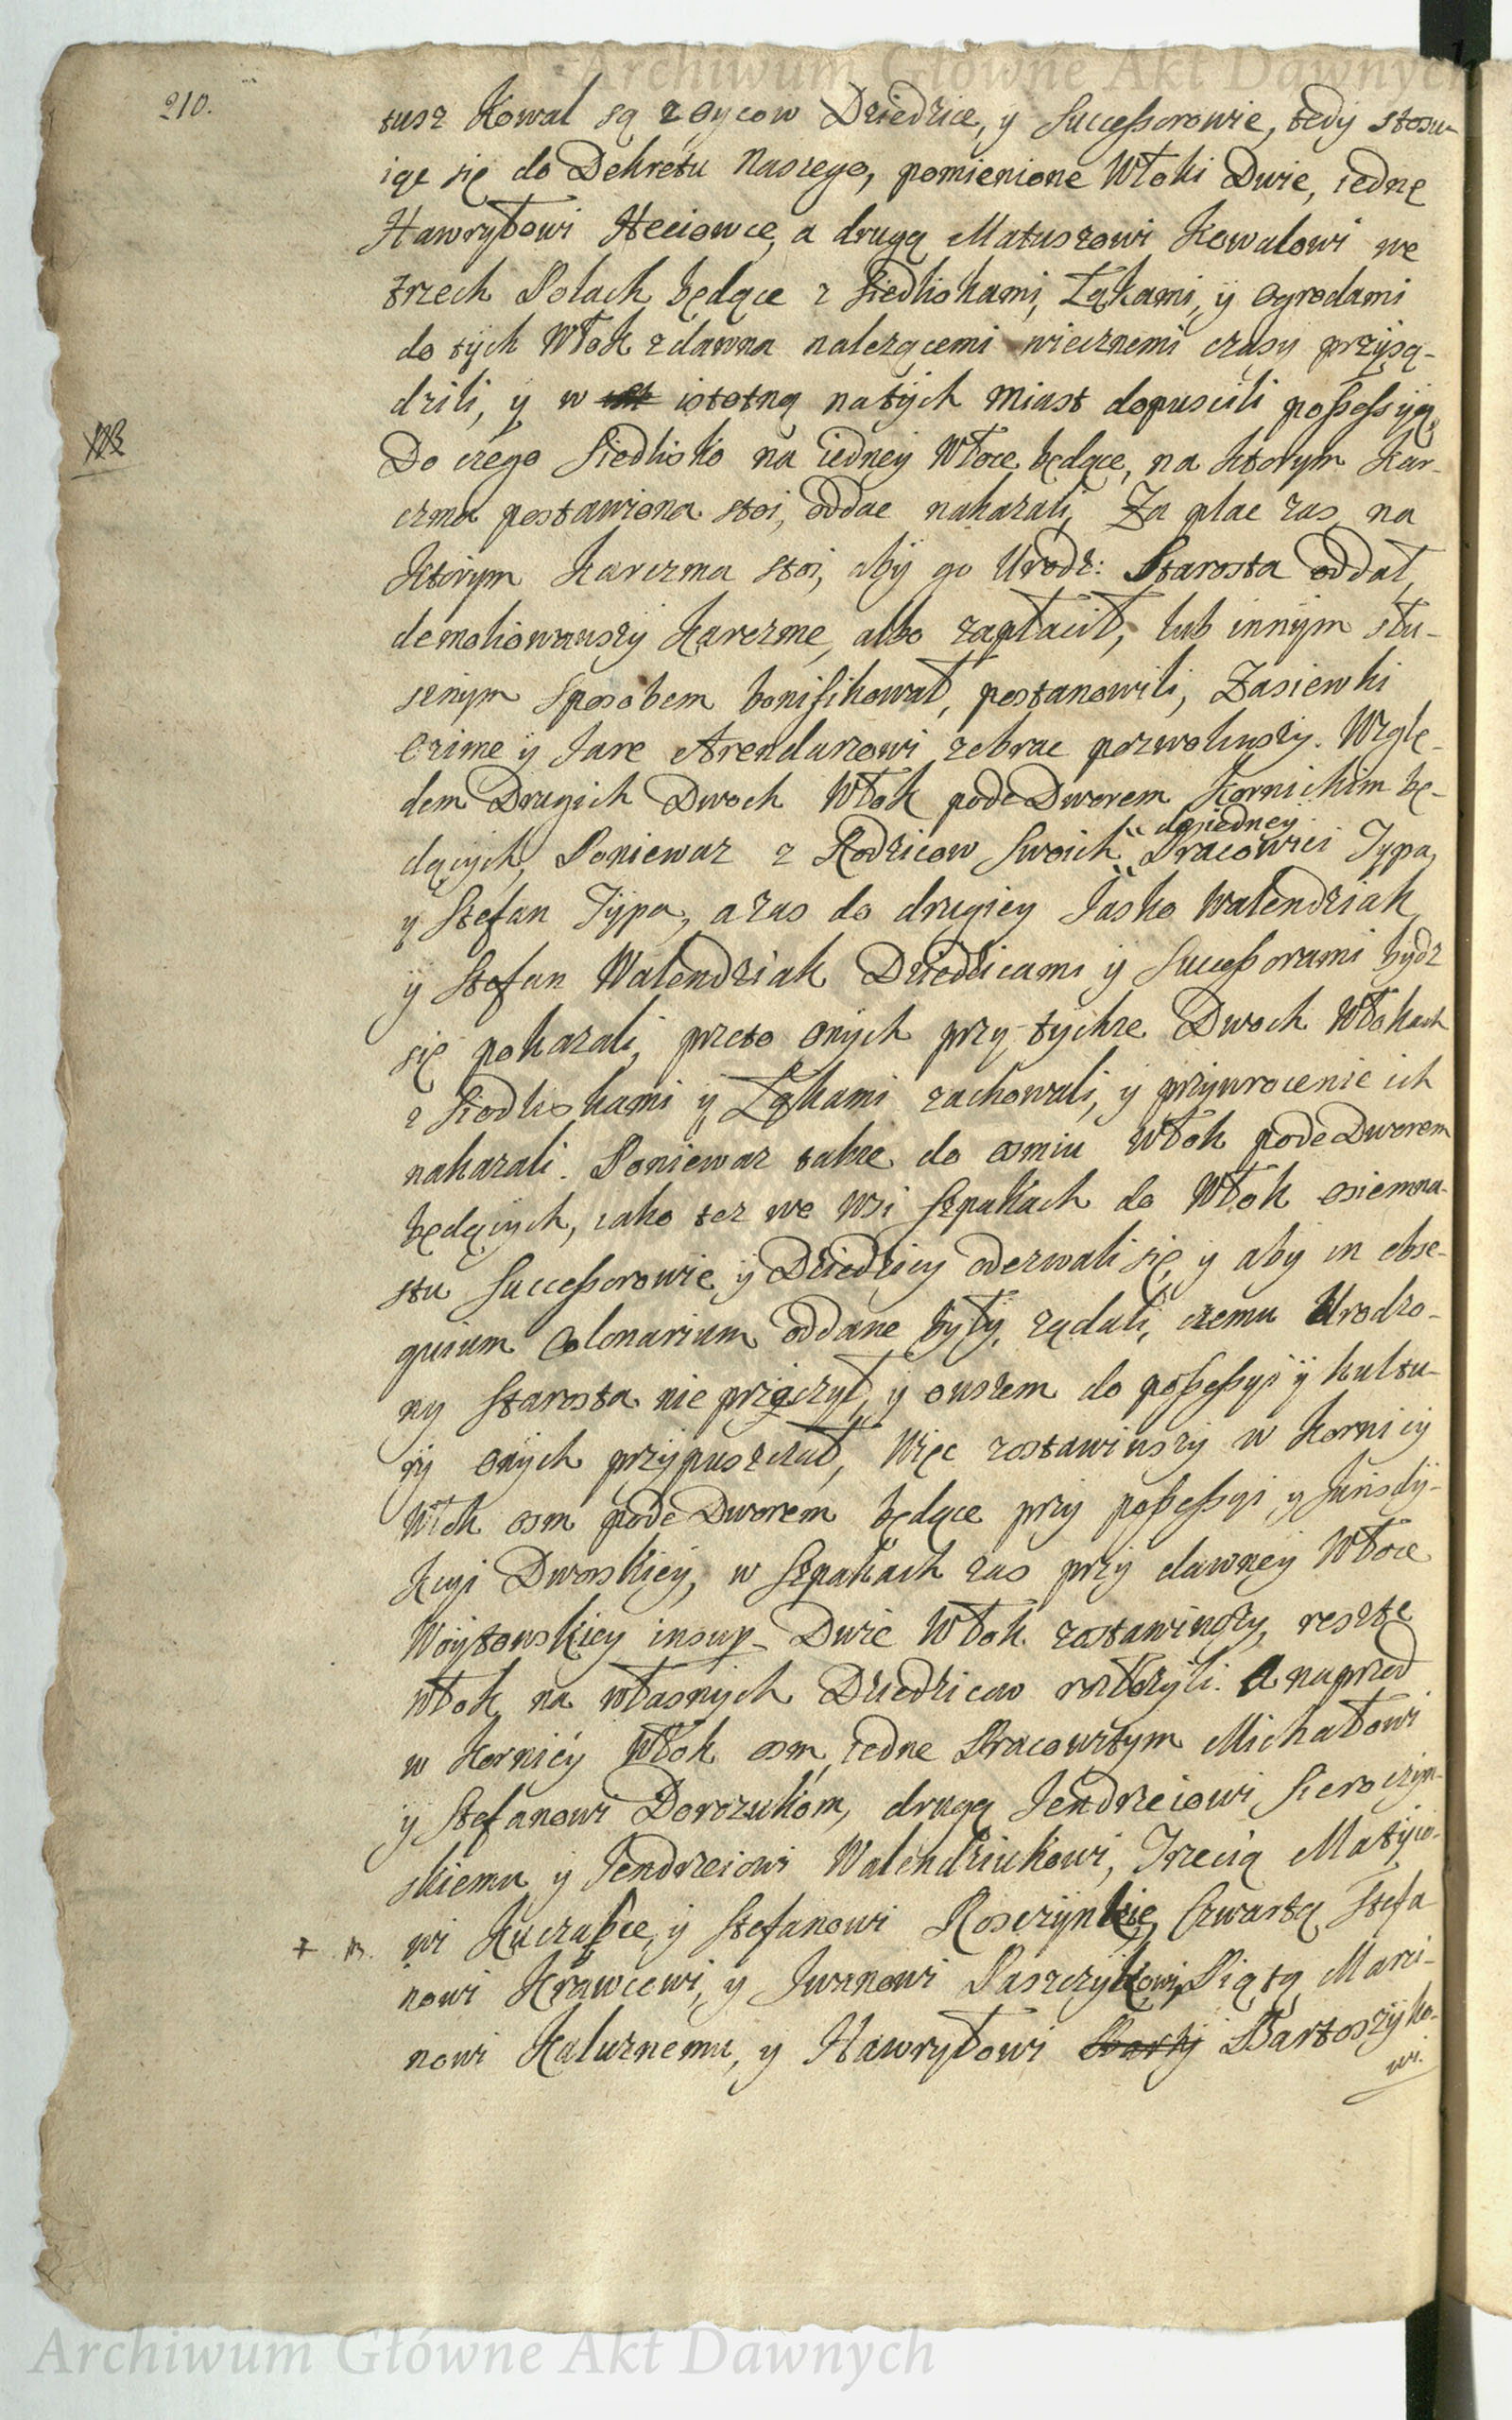 Archiwum Główne Akt Dawnych
210.
tusz Kowal są z Oycow Dziedzice, y Successorowie, tedy stosu-
iąc się do Dekretu Naszego, pomienione Włoki Dwie, iednę
Hawryłowi Heciowce, a drugą Matuszowi Kowalowi we
trzech Polach będące z Siedliskami, Łąkami, y Ogrodami
do tych Włok zdawna należącemi wiecznemi czasy przysą-
dzili, y w istotną natych miast dopuscili possessyą,
NB
Do czego Siedlisko na iedney Włoce będące, na ktorym Kar-
czma postawiona stoi, oddac nakazali, Za plac zas, na
ktorym Karczma stoi, aby go Urodz: Starosta oddał,
demoliowawszy Karczmę, albo zapłacił, lub innym słu-
sznym sposobem bonifikował, postanowili, Zasiewki
Ozime y Jare Arendarzowi zebrac pozwoliwszy. Wzglę-
dem Drugich Dwoch Włok pode Dworem Kornickim bę-
do iedney
dących, Poniewaz z Rodzicow Swoich Pracowici Typa,
y Stefan Typa, a zas do drugiey Jasko Walendziak
y Stefan Walendziak Dziedzicami y Successorami bydz
się pokazali, przeto onych przy tychze Dwoch Włokach
z Siedliskami y Łąkami zachowali, y przywrocenie ich
nakazali. Poniewaz takze do osmiu Włok pode Dworem
będących, iako tez we Wsi Szpakach do Włok osiemna-
stu Successorowie y Dziedzicy odezwali się y aby in obse-
quium Colonarium oddane były, ządali, czemu Urodzo-
ny Starosta nie przeczył, y owszem do possessyi y kultu-
ry onych przypuszczał, Więc zostawiwszy w Kornicy
Włok osm pode Dworem będące przy possessyi y Jurisdy-
kcyi Dworskiey, w Szpakach zas przy dawney Włoce
Woytowskiey insup. Dwie Włok zostawiwszy, resztę
włok na własnych Dziedzicow rozłozyli. A naprzod
w Kornicy Włok osm, iedne Pracowitym Michałowi
y Stefanowi Dorozukom, drugą Jendrzeiowi Sieroczyn-
skiemu y Jendrzeiowi Walendziukowi, Trzecią Matyio-
wi Kuczabce, y Stefanowi Roszczynkie, Czwartą Stefa
nowi Krawcowi, y Iwanowi Paszczykowi, Piątą Marci-
nowi Kaluznemu, y Hawryłowi Bartoszyko-
wi.
Archiwum Główne Akt Dawnych